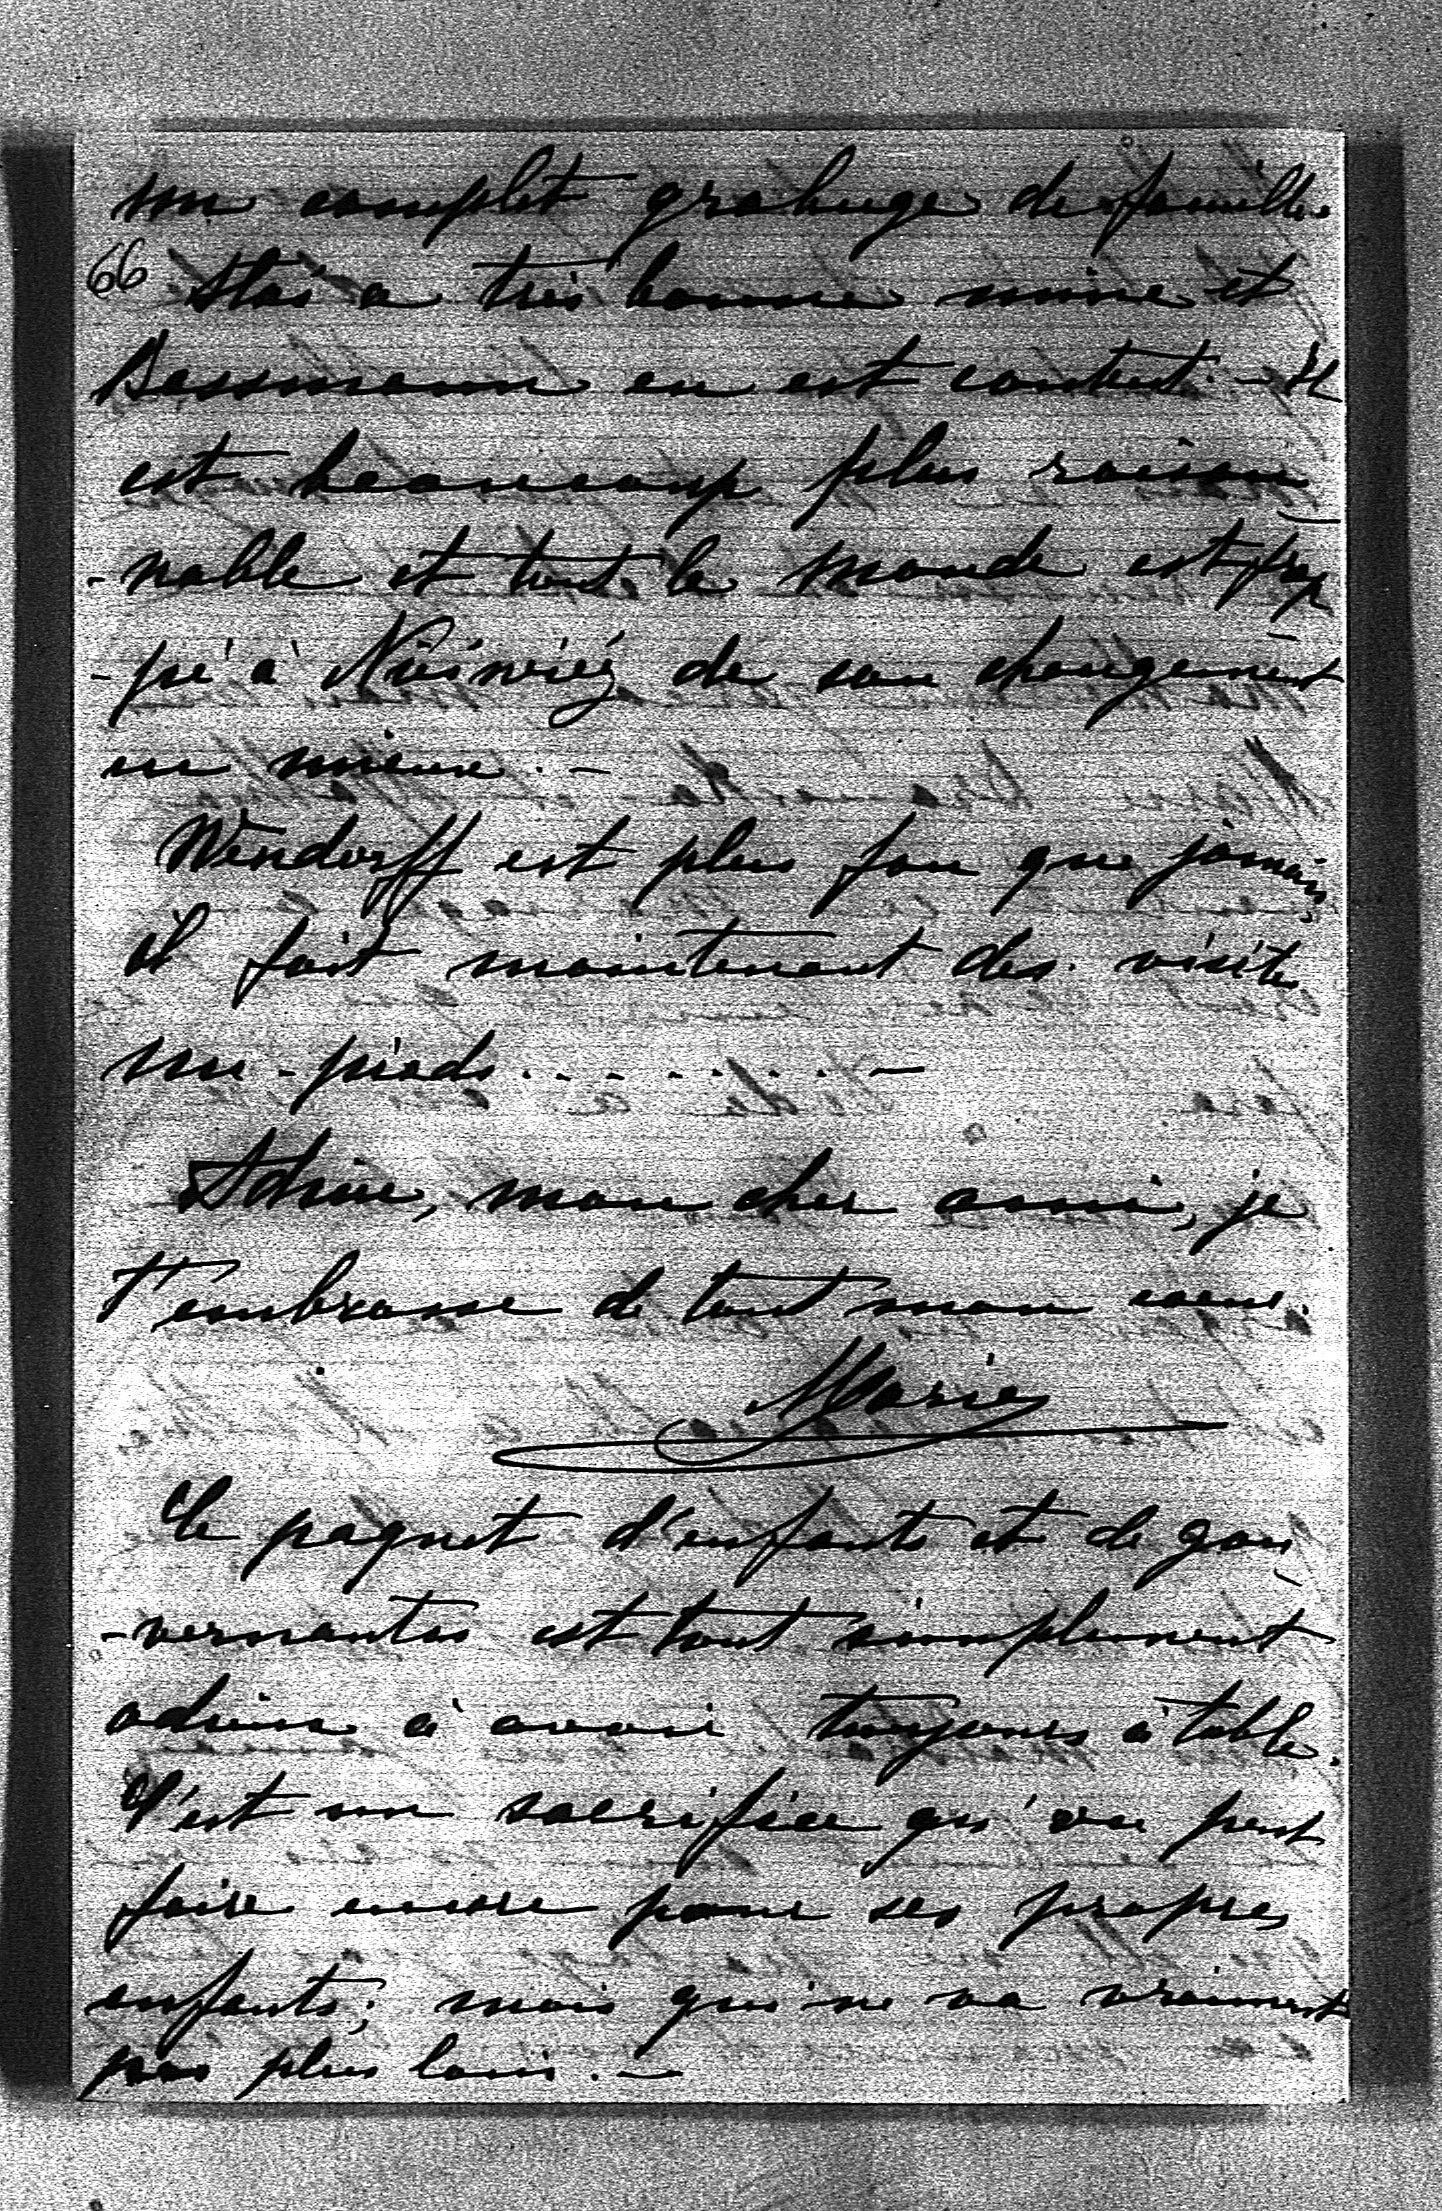 un complet grabuge de famille.
66 Staś a très bonne mine et
Dessmann en est content. - Il
est beaucoup plus raison
-nable et tout le monde est frap
-pé à Nieśwież de son changement
en mieux. -
Wendorff est plus fou que jamais,
il fait maintenant des visites
nu-pieds . . . . . . . . -
Adieu, mon cher ami, je
t'embrasse de tout mon coeur.
Marie
Ce paquet d'enfants et de gou
-vernantes est tout simplement
à avoir toujours à table.
C'est un sacrifice qu'on peut
faire encore pour ses propres
enfants; mais qui ne va vraiment
pas plus loin. -